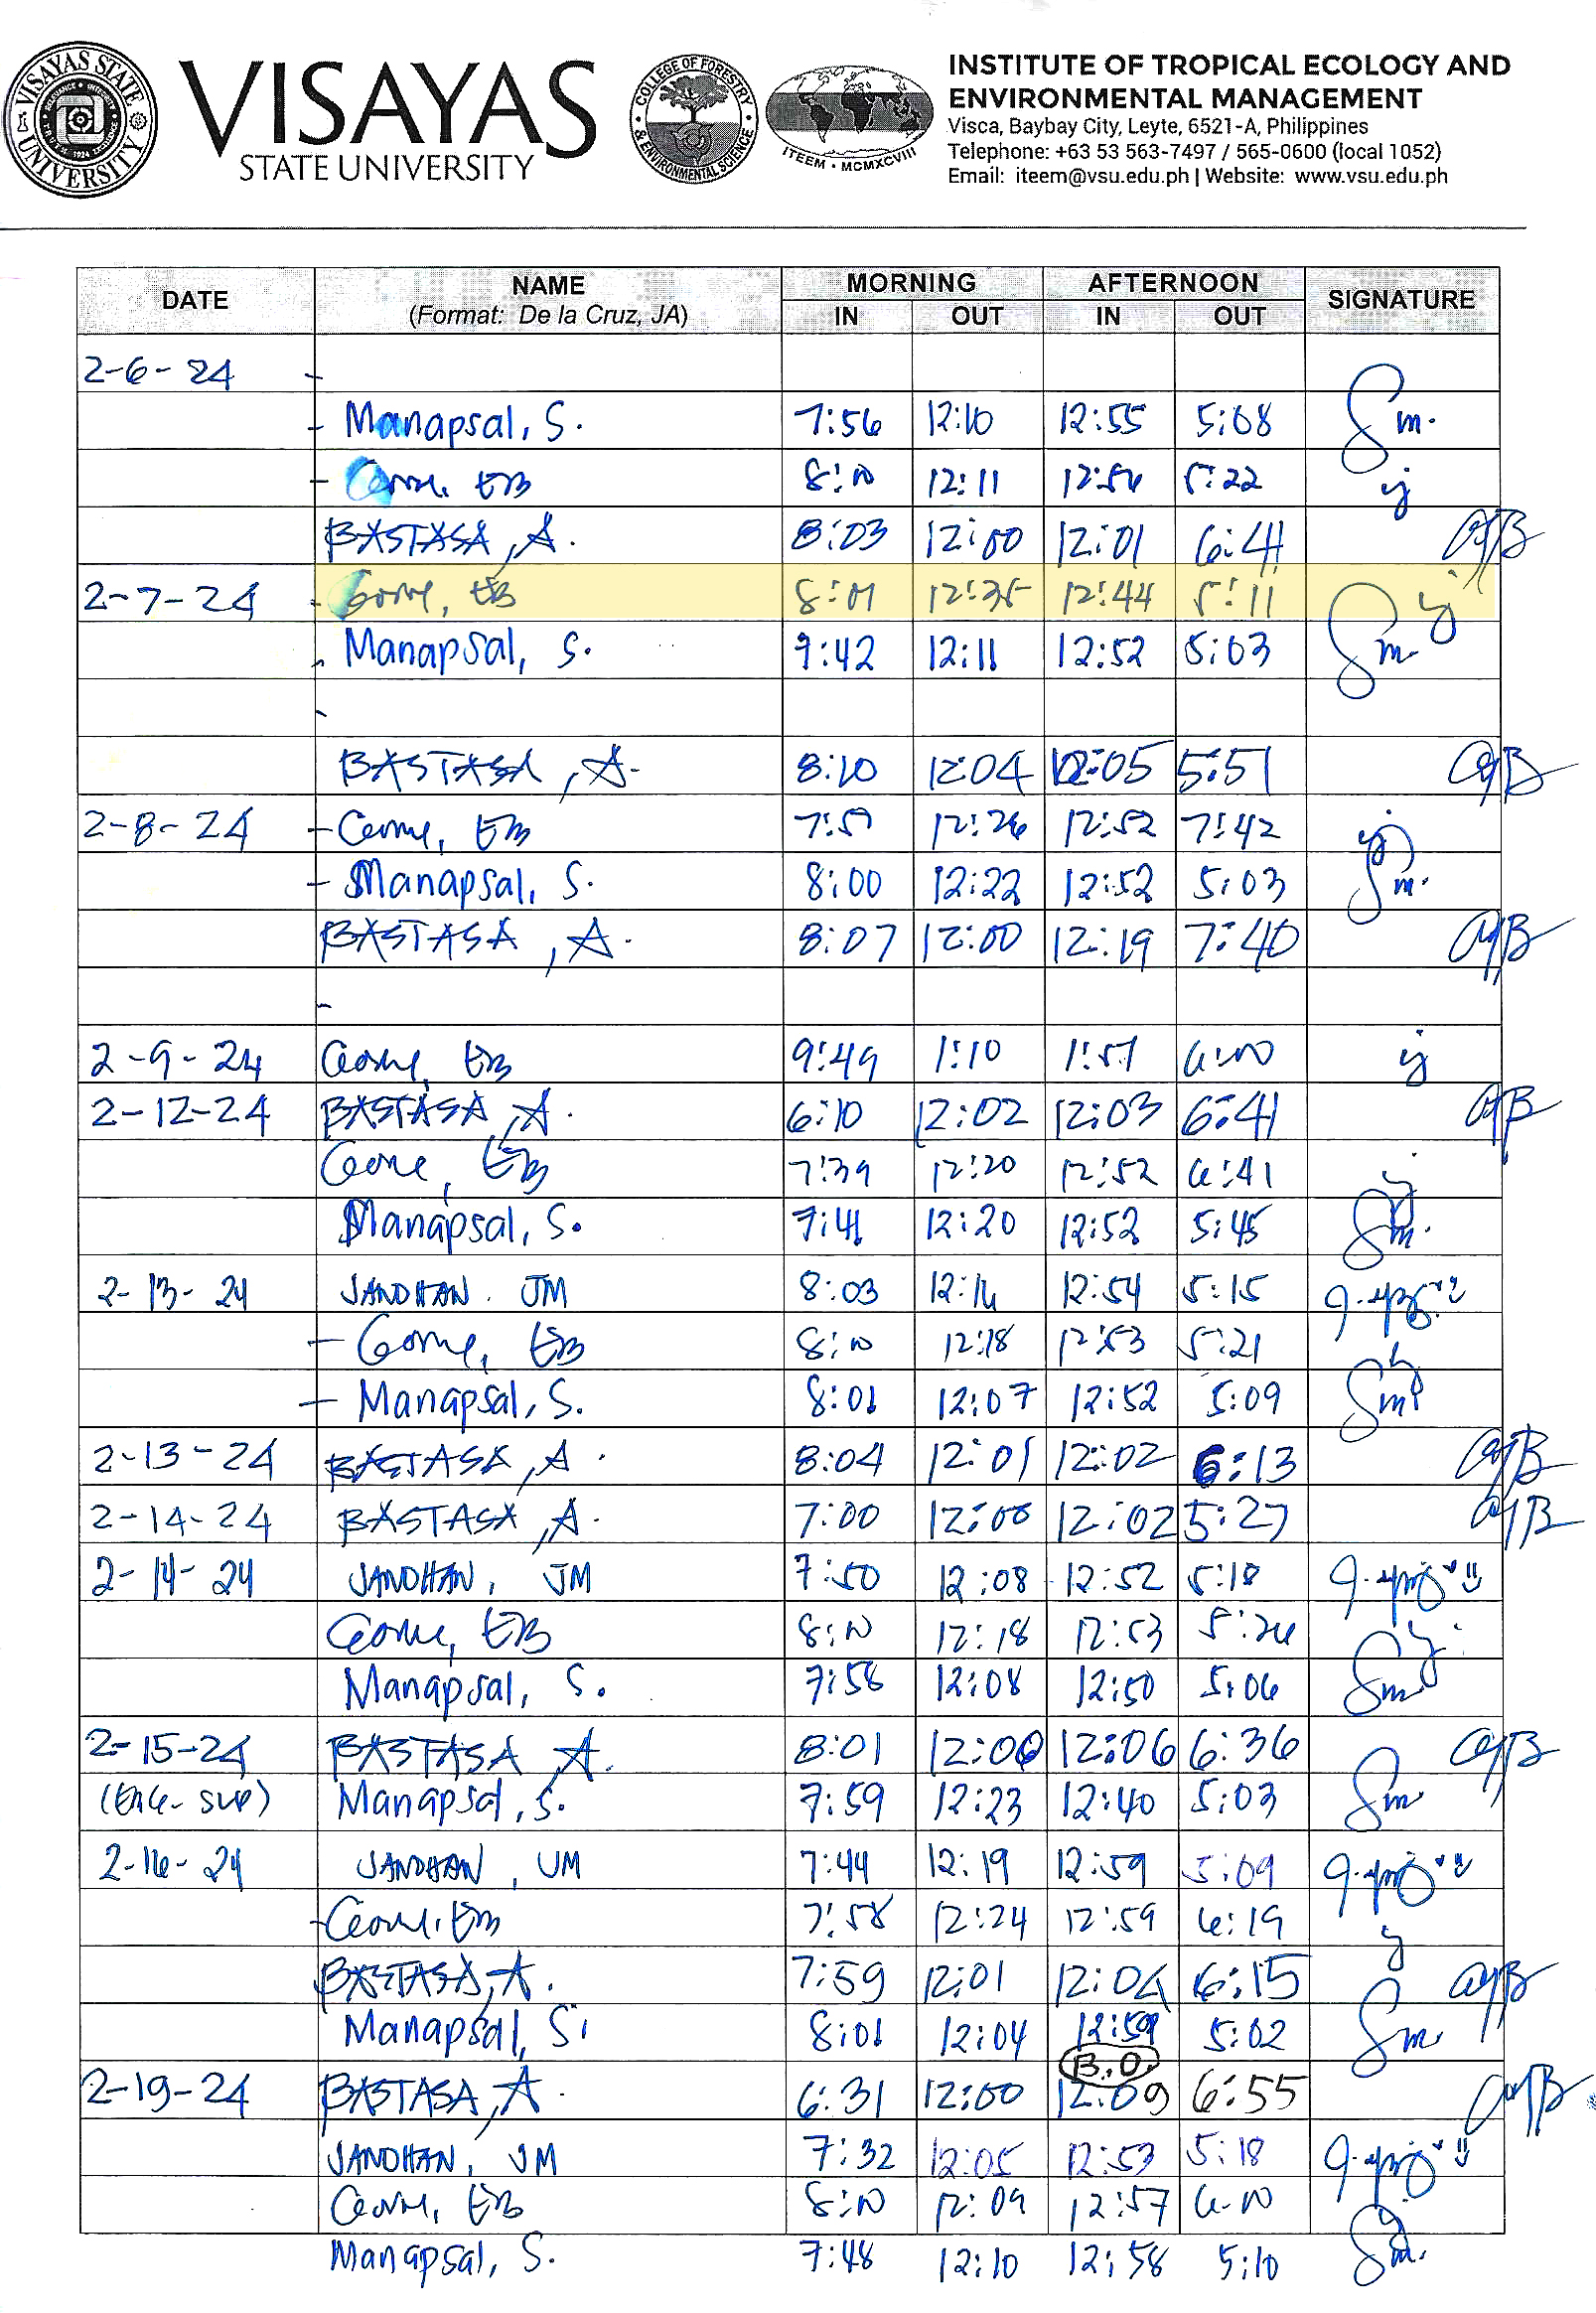 VISAYAS STATE UNIVERSITY
VISAYAS
STATE UNIVERSITY
COLLEGE OF FORESTRY & ENVIRONMENTAL SCIENCE
ITEEM · MCMXCVIII
INSTITUTE OF TROPICAL ECOLOGY AND
ENVIRONMENTAL MANAGEMENT
Visca, Baybay City, Leyte, 6521-A, Philippines
Telephone: +63 53 563-7497 / 565-0600 (local 1052)
Email: iteem@vsu.edu.ph | Website: www.vsu.edu.ph
DATE NAME (Format: De la Cruz, JA) MORNING IN OUT AFTERNOON IN OUT SIGNATURE
2-6-24 -
- Manapsal, S. 7:56 12:10 12:55 5:08 Sm.
- EB 12:11 12:56 5:22
BASTASA, A. 8:03 12:00 12:01 6:41 AJB
2-7-24 EB 12:35 12:44 5:11
Manapsal, S. 9:42 12:11 12:52 5:03 Sm.
BASTASA, A. 8:10 12:04 12:05 5:51 AJB
2-8-24 - EB 12:26 12:52 7:42
- Manapsal, S. 8:00 12:22 12:52 5:03 Sm.
BASTASA, A. 8:07 12:00 12:19 7:40 AJB
-
2-9-24 EB 9:49 1:10 1:57 6:00
2-12-24 BASTASA, A. 6:10 12:02 12:03 6:41 AJB
EB 7:39 12:20 12:52 6:41
Manapsal, S. 7:41 12:20 12:52 5:45 Sm.
2-13-24 JANDHAN. JM 8:03 12:16 12:54 5:15
- EB 8:00 12:18 12:53 5:21
- Manapsal, S. 8:01 12:07 12:52 5:09 Sm
2-13-24 BASTASA, A. 8:04 12:01 12:02 6:13 AJB
2-14-24 BASTASA, A. 7:00 12:00 12:02 5:27 AJB
2-14-24 JANDHAN, JM 7:50 12:08 12:52 5:18
EB 8:00 12:18 12:53 5:26
Manapsal, S. 7:58 12:08 12:50 5:06 Sm
2-15-24 BASTASA, A. 8:01 12:00 12:06 6:36 AJB
Manapsal, S. 7:59 12:23 12:40 5:03 Sm.
2-16-24 JANDHAN, JM 7:44 12:19 12:59 5:09
- EB 7:58 12:24 12:59 6:19
BASTASA, A. 7:59 12:01 12:04 6:15 AJB
Manapsal, S. 8:01 12:04 12:59 5:02 Sm.
B.O.
2-19-24 BASTASA, A. 6:31 12:00 12:09 6:55 AJB
JANDHAN, JM 7:32 12:05 12:53 5:18
EB 8:00 12:09 12:57 6:00
Manapsal, S. 7:48 12:10 12:58 5:10 Sm.